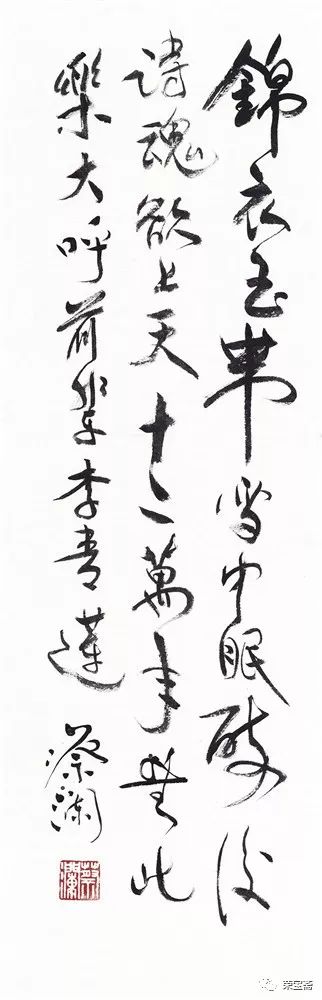 錦衣玉帶雪中眠醉後
詩魂欲上天十二萬年無此
樂大呼前輩李青蓮
蔡瀾
蔡瀾
荣宝斋